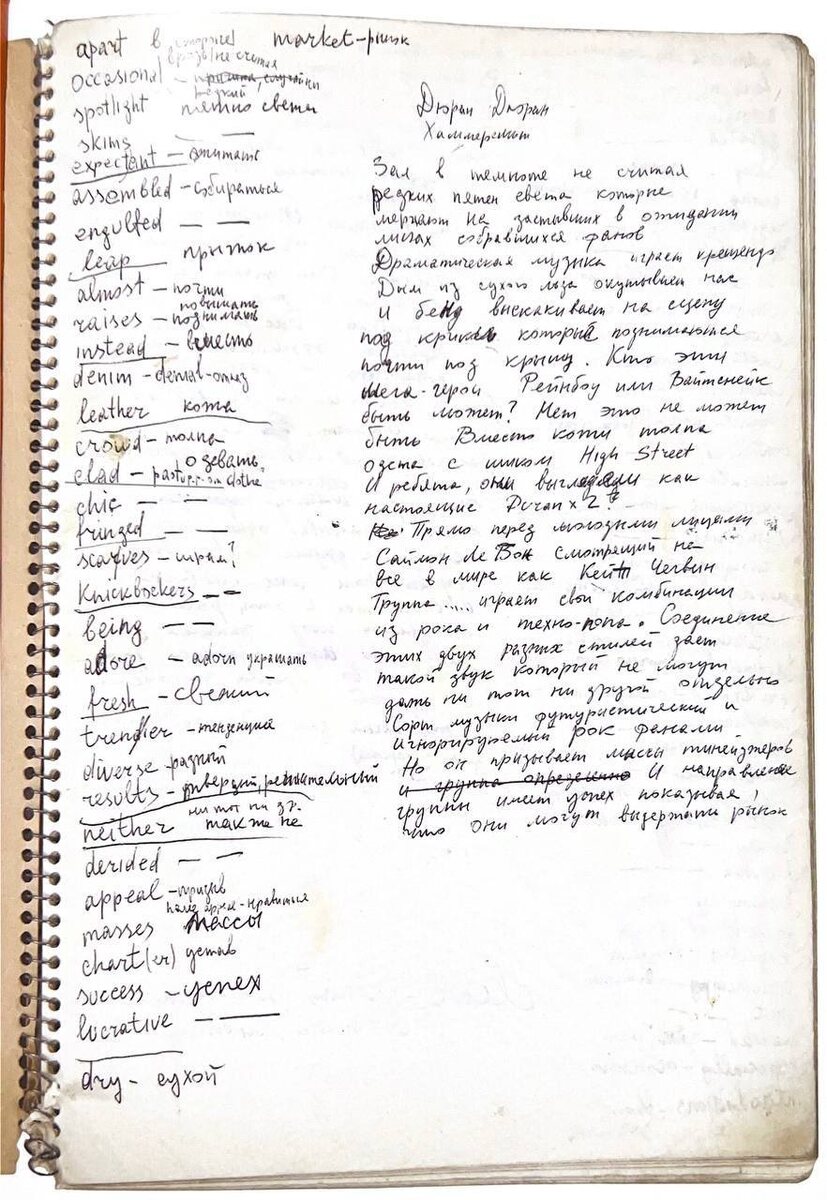 apart в стороне market-рынок
врозь/не считая
occasional - случайный
редкий
spotlight пятно света
skims — —
expectant - ожидать
assembled - собираться
engulfed — —
leap прыжок
almost - почти
повышать
raises - поднимать
instead - вместо
denim - denial-отказ
leather кожа
crowd - толпа
одевать
clad - past от clothe
chic — —
fringed — —
scarves - шрам?
Knickbockers — —
being — —
adore - adorn украшать
fresh - свежий
trendier - тенденция
diverse - разный
results -
ни тот ни др.
neither также не
derided — —
appeal - призыв
нравиться
masses массы
chart(er) устав
success - успех
lucrative — —
dry - сухой
Дюран Дюран
Хаммерсмит
Зал в темноте не считая
редких пятен света которые
мерцают на застывших в ожидании
лицах собравшихся фанов
Драматическая музыка играет крещендо
Дым из сухого льда окутывает нас
и бенд выскакивает на сцену
под крики который поднимаются
почти под крышу. Кто эти
мега-герои Рейнбоу или Вайтснейк
быть может? Нет это не может
быть Вместо кожи толпа
одета с шиком High Street
И ребята, они выглядели как
настоящие Duran x 2!
Прямо перед молодыми лицами
Саймон Ле Бон смотрящий на
все в мире как Кейт Чегвин
Группа .... играет свои комбинации
из рока и техно-попа. Соединение
этих двух разных стилей дает
такой звук который не могут
дать ни тот ни другой отдельно
Сорт музыки футуристический и
игнорируемый рок фенами
Но он призывает массы тинейджеров
и группа определенно И направление
группы имеет успех показывая,
что они могут выдержать рынок